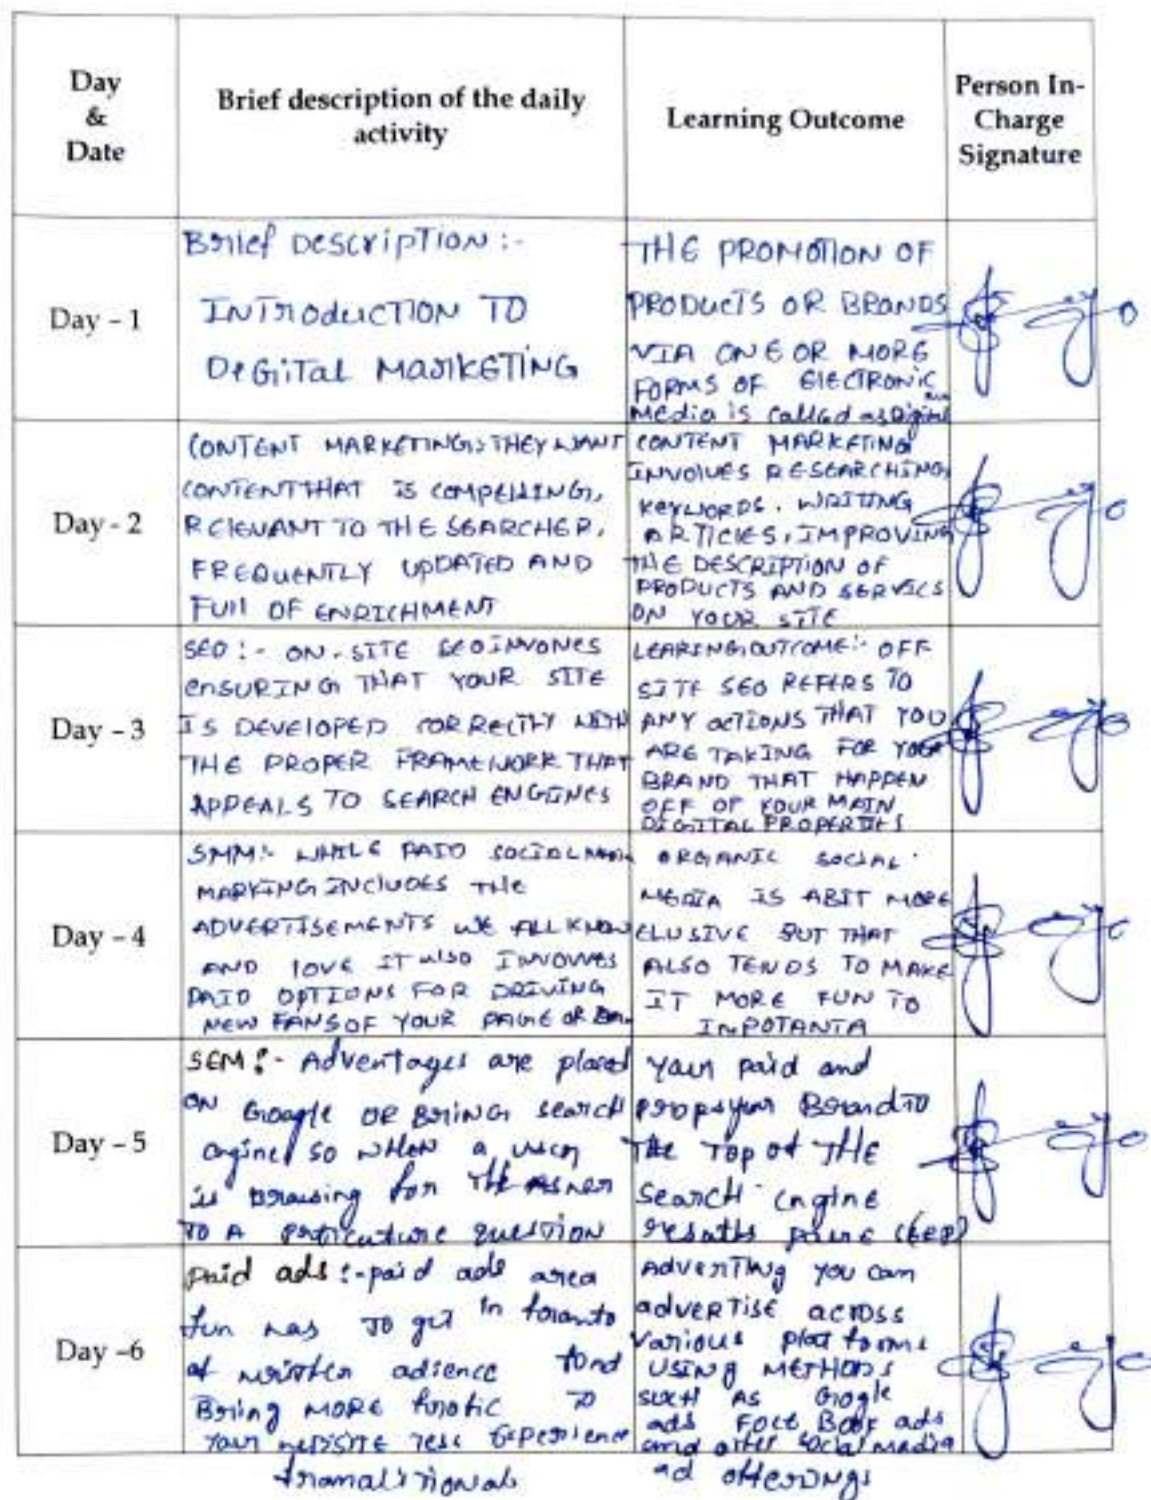 Day
&
Date
Brief description of the daily
activity
Learning Outcome
Person In-
Charge
Signature
Day - 1
Brief DESCRIPTION :-
INTRODUCTION TO
DEGITAL MARKETING
THE PROMOTION OF
PRODUCTS OR BRANDS
VIA ONE OR MORE
FORMS OF ELECTRONIC
Media is called as Digital
Day - 2
CONTENT MARKETING: THEY WANT
CONTENT THAT IS COMPELLING,
RELEVANT TO THE SEARCHER,
FREQUENTLY UPDATED AND
FULL OF ENRICHMENT
CONTENT MARKETING
INVOLVES RESEARCHING
KEYWORDS. WRITING
ARTICLES, IMPROVING
THE DESCRIPTION OF
PRODUCTS AND SERVICS
ON YOUR SITE
Day - 3
SEO :- ON-SITE SEO INVONES
ENSURING THAT YOUR SITE
IS DEVELOPED CORRECTLY WITH
THE PROPER FRAMEWORK THAT
APPEALS TO SEARCH ENGINES
LEARING OUTCOME:- OFF
SITE SEO REFERS TO
ANY ACTIONS THAT YOU
ARE TAKING FOR YOUR
BRAND THAT HAPPEN
OFF OF YOUR MAIN
DIGITAL PROPERTIES
Day - 4
SMM:- WHILE PAID SOCIAL MEDIA
MARKING INCLUDES THE
ADVERTISEMENTS WE ALL KNOW
AND LOVE IT ALSO INVOLVES
PAID OPTIONS FOR DRIVING
NEW FANS OF YOUR PAGE OR
ORGANIC SOCIAL
MEDIA IS ABIT MORE
ELUSIVE BUT THAT
ALSO TENDS TO MAKE
IT MORE FUN TO
INPOTANTA
Day - 5
SEM :- Adventages are placed
ON Google OR BRING search
engine so when a user
is browsing for THE
TO A question
Your paid and
Brand TO
THE TOP of THE
search engine
Day -6
paid ads :- paid ads area
fun to get in
at adience
Bring MORE TO
Your Experience
you can
advertise across
various plat forms
USING METHODS
such AS Google
ads Face Book ads
and other social media
ad offerings